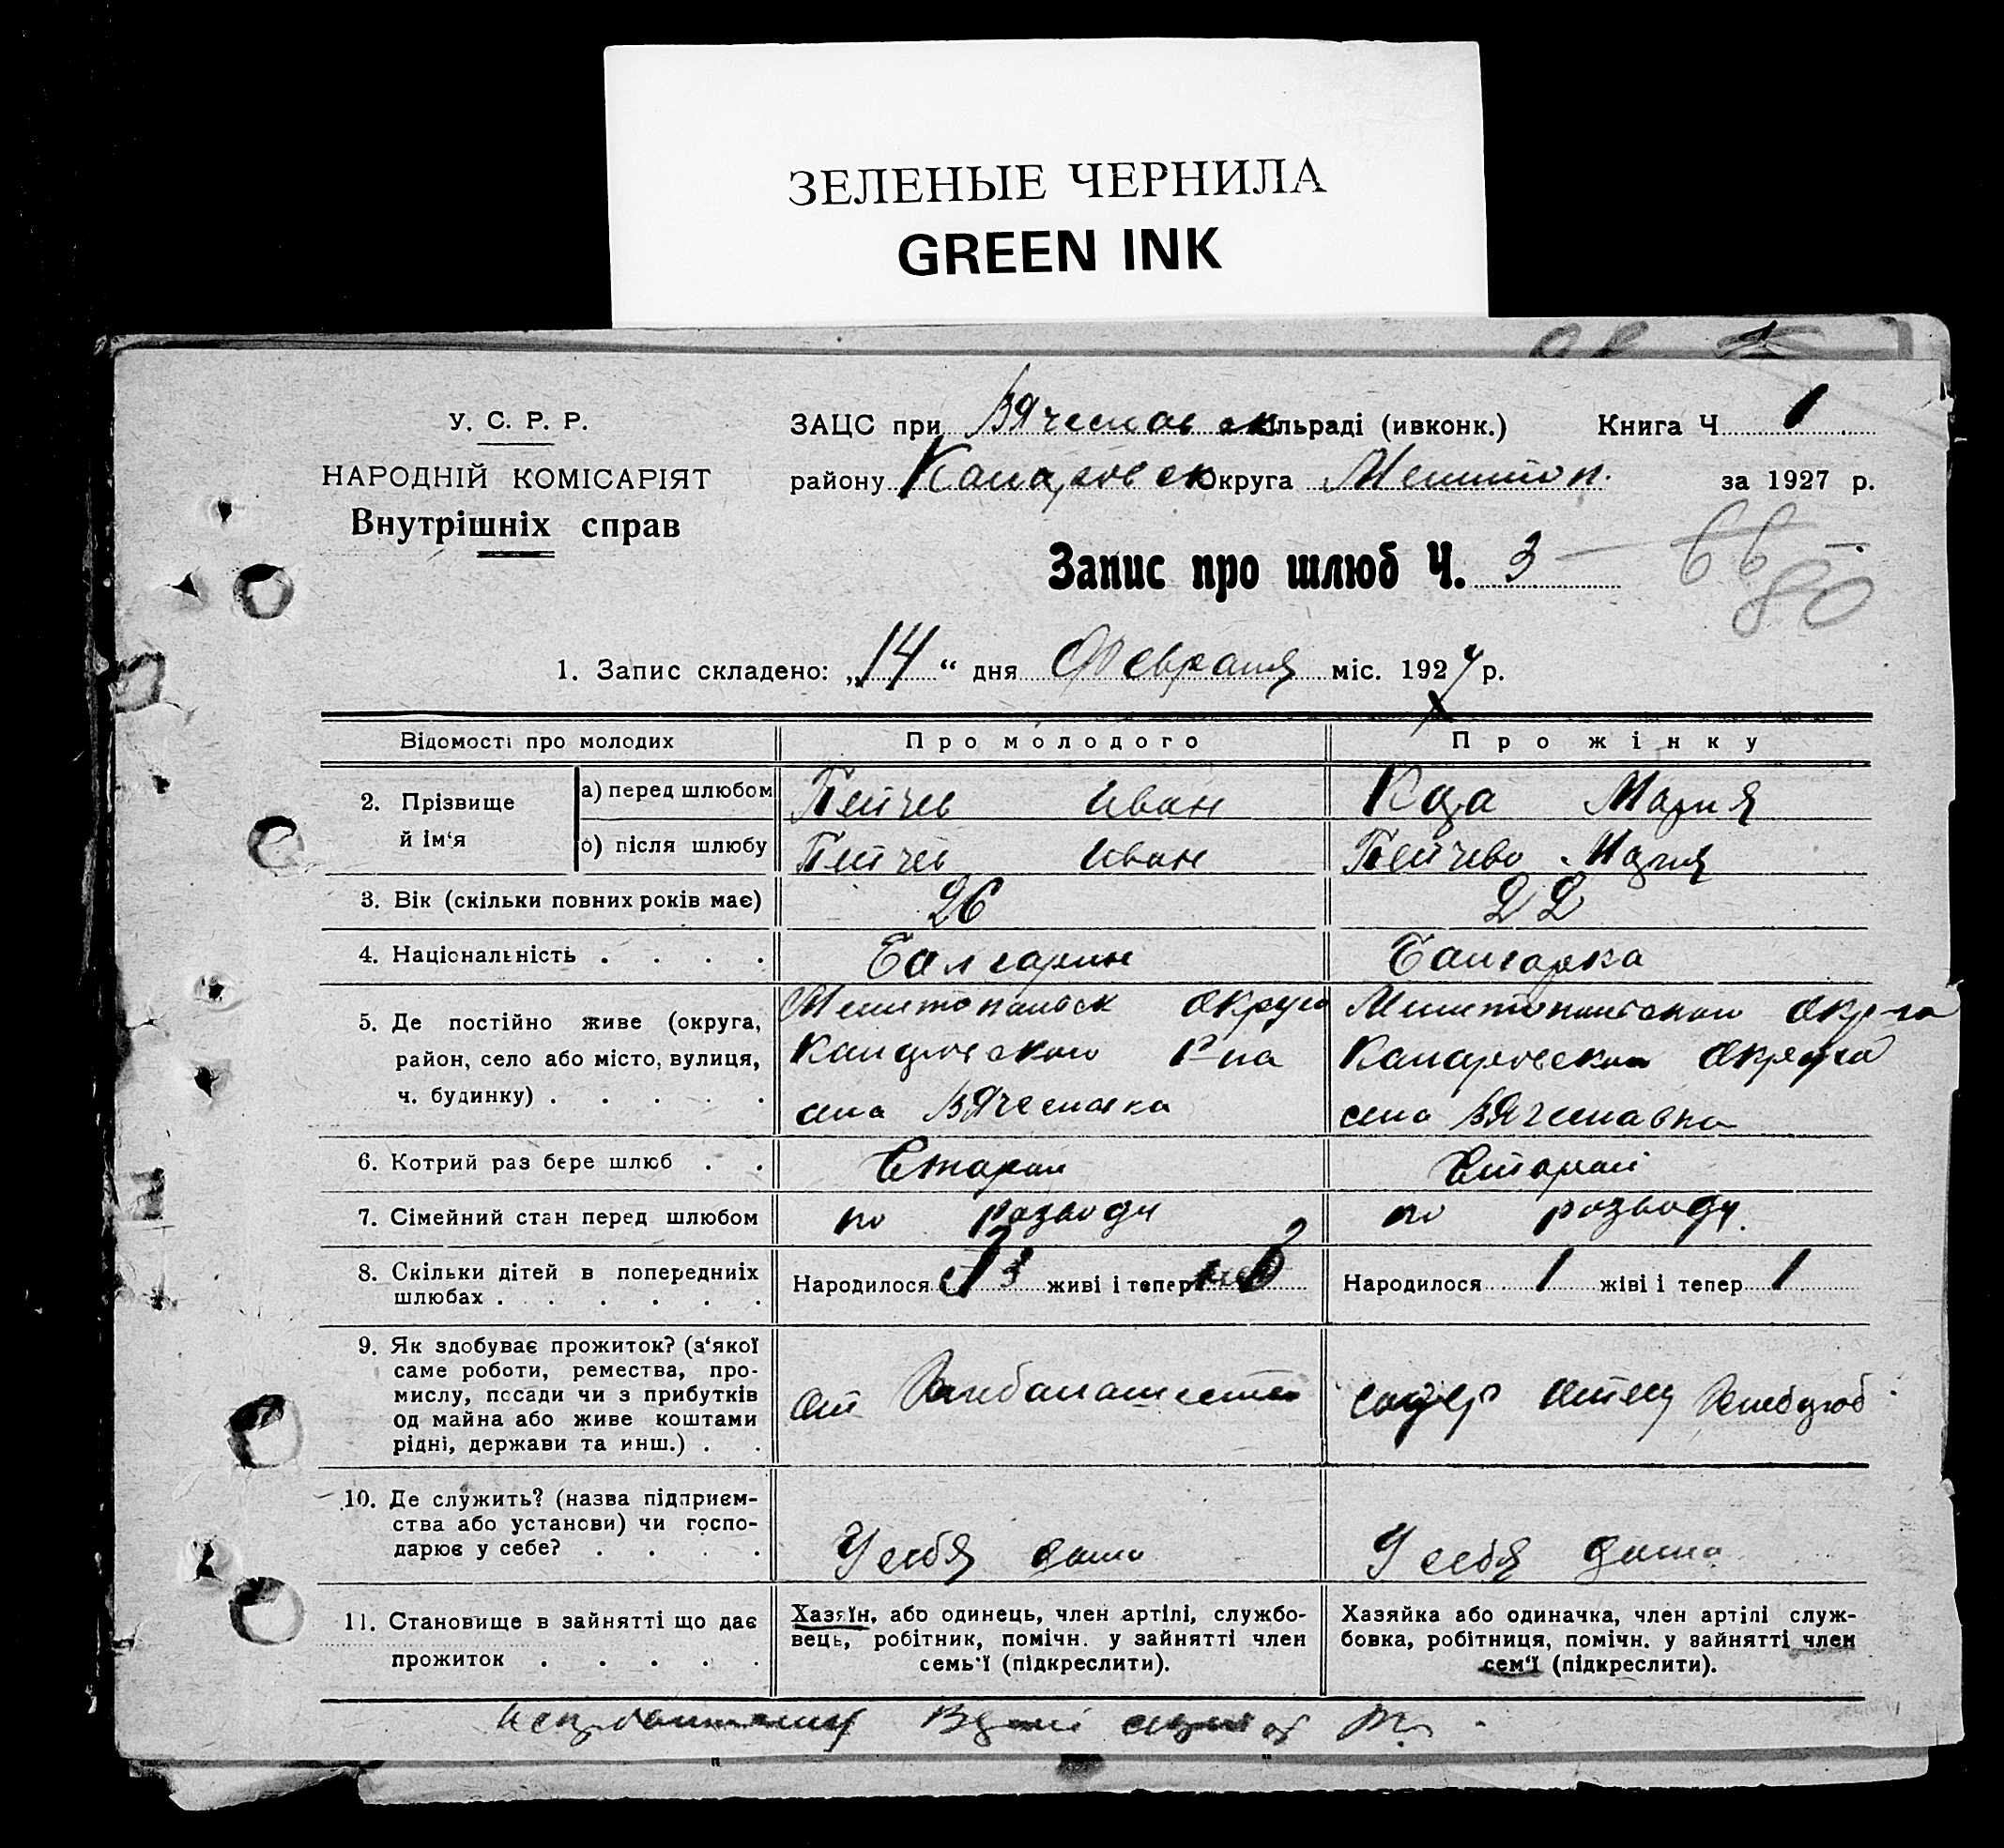 ЗЕЛЕНЫЕ ЧЕРНИЛА
GREEN INK
У. С. Р. Р.
НАРОДНІЙ КОМІСАРІЯТ
Внутрішніх справ
ЗАЦС при Вячеславск ільраді (ивконк.) Книга Ч 1
району Коларовск Округа Мелитоп. за 1927 р.
Запис про шлюб Ч. 3 — 66
80
1. Запис складено: „14“ дня Февраля міс. 1927 р.
Відомості про молодих Про молодого Про жінку
2. Прізвище й ім‘я
а) перед шлюбом Пейчев Иван Мария
б) після шлюбу Пейчев Иван Пейчева Мария
3. Вік (скільки повних років має) 26 22
4. Національність . . . . Болгарин Болгарка
5. Де постійно живе (округа, Мелитопольск округа Мелитопольской округа
район, село або місто, вулиця, Коларовского р-на Коларовского округа
ч. будинку) . . . . . села Вячеславка села Вячеславка
6. Котрий раз бере шлюб . . Второй Второй
7. Сімейний стан перед шлюбом по розводу по розводу.
8. Скільки дітей в попередниіх шлюбах . . . . . .
Народилося 3 живі і тепер Народилося 1 жіві і тепер 1
9. Як здобуває прожиток? (з‘якої
саме роботи, ремества, про-
мислу, посади чи з прибутків
од майна або живе коштами
рідні, держави та инш.) . .
от Хлебопашества отец Хлебороб
10. Де служить? (назва підприєм-
ства або установи) чи госпо-
дарює у себе? . . . .
У себя дома У себя дома
11. Становище в зайнятті що дає
прожиток . . . . .
Хазяїн, або одинець, член артілі, службо-
вець, робітник, помічн. у зайнятті член
семь‘ї (підкреслити).
Хазяйка або одиначка, член артілі служ-
бовка, робітниця, помічн. у зайнятті член
сем‘ї (підкреслити).